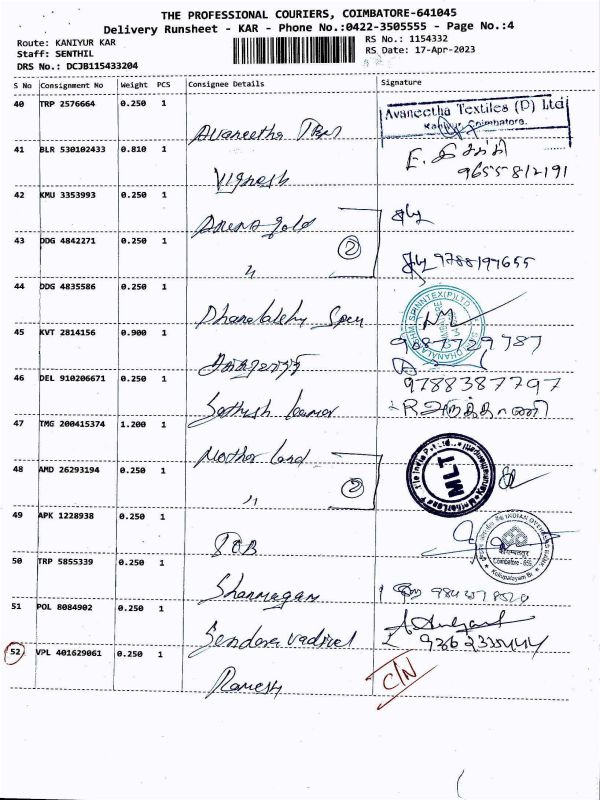 THE PROFESSIONAL COURIERS, COIMBATORE-641045
Delivery Runsheet - KAR - Phone No.:0422-3505555 - Page No.:4
Route: KANIYUR KAR
RS No.: 1154332
Staff: SENTHIL
RS Date: 17-Apr-2023
DRS No.: DCJB115433204
S No Consignment No Weight PCS Consignee Details Signature
40 TRP 2576664 0.250 1
Avaneetha Textiles (P) Ltd
Kaniyur, Coimbatore.
Avaneetha Tex
41 BLR 530102433 0.810 1
9655812191
Vignesh
42 KMU 3353993 0.250 1
gold
43 DDG 4842271 0.250 1
2
9788197655
"
44 DDG 4835586 0.250 1
Dhanalakshmi Spin
45 KVT 2814156 0.900 1
9687729787
46 DEL 910206671 0.250 1
9788387797
Sathish kumar
47 TMG 200415374 1.200 1
Mother Land
MLT
48 AMD 26293194 0.250 1
2
"
49 APK 1228938 0.250 1
INDIAN OVERSEAS BANK
Coimbatore - 659
IOB
50 TRP 5855339 0.250 1
Shanmugam
51 POL 8084902 0.250 1
Sendora vadivel
52 VPL 401629061 0.250 1
C/N
Ramesh